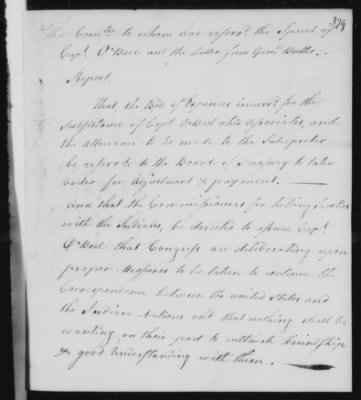 379
The Comtee to whom was referrd. the Speech of
Capt. O'Beel and the Letter from Genl. Butler
Report
That the Bill of Expences incurrd. for the
Subsistance of Capt O'Beel & his Associates, and
the allowance to be made to the Interpreter
be referrd. to the Board of Treasury to take
order for Adjustment & payment.
And that the Commissioners for holding Treaties
with the Indians, be directed to assure Capt.
O'Beel that Congress are deliberating upon
proper Measures to be taken to continue the
Correspondence between the united states and
the Indian Nations and that nothing shall be
wanting on their part to cultivate friendship
& good Understanding with them.